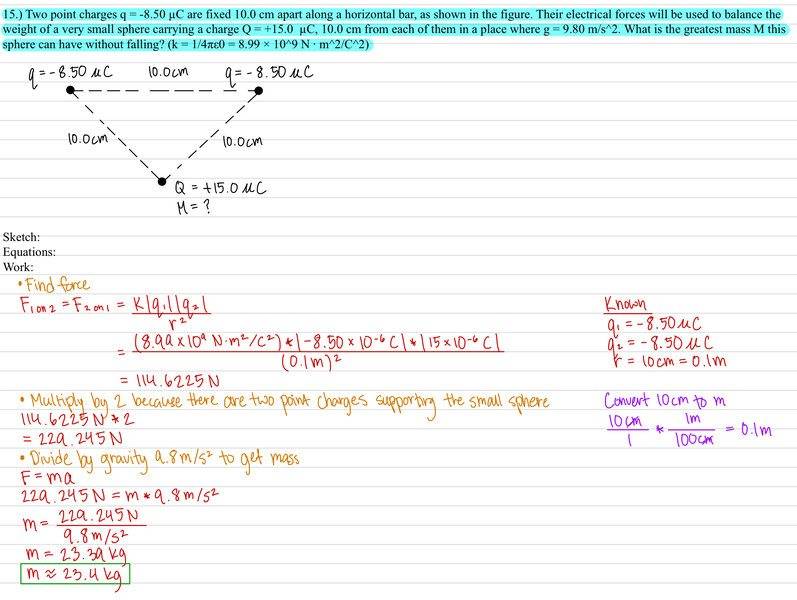 15.) Two point charges q = -8.50 μC are fixed 10.0 cm apart along a horizontal bar, as shown in the figure. Their electrical forces will be used to balance the
weight of a very small sphere carrying a charge Q = +15.0 μC, 10.0 cm from each of them in a place where g = 9.80 m/s^2. What is the greatest mass M this
sphere can have without falling? (k = 1/4πε0 = 8.99 × 10^9 N · m^2/C^2)
q = -8.50 μC 10.0cm q = -8.50 μC
10.0cm 10.0cm
Q = +15.0 μC
M = ?
Sketch:
Equations:
Work:
• Find force
F1 on 2 = F2 on 1 = K|q1||q2| / r²
= (8.99 x 10⁹ N·m²/C²) * |-8.50 x 10⁻⁶ C| * |15 x 10⁻⁶ C| / (0.1m)²
= 114.6225 N
Known
q1 = -8.50 μC
q2 = -8.50 μC
r = 10cm = 0.1m
• Multiply by 2 because there are two point charges supporting the small sphere
114.6225 N * 2
= 229.245 N
Convert 10cm to m
10cm / 1 * 1m / 100cm = 0.1m
• Divide by gravity 9.8 m/s² to get mass
F = ma
229.245 N = m * 9.8 m/s²
m = 229.245 N / 9.8 m/s²
m = 23.39 kg
m ≈ 23.4 kg